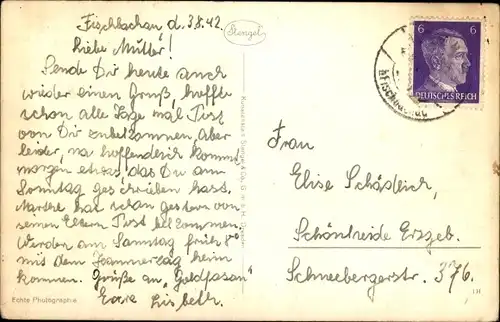 Fischbachau, d. 3.8.42.
Liebe Mutter!
Sende Dir heute auch
wieder einen Gruß, hoffte
schon alle Tage mal Post
von Dir zubekommen, Aber
leider, na hoffendlich kommt
morgen etwas, das Du am
Sonntag geschrieben hast.
hat schon gestern von
seinen Eltern Post bekommen.
Werden am Samstag früh 8°
mit dem zug heim
kommen. Grüße an „Goldfasan"
Eure Lisbeth.
Stengel
Kunstanstalt Stengel & Co., G. m. b. H., Dresden
6 6
DEUTSCHES REICH
Fischbachau
Frau
Elise Schädlich,
Schönheide Erzgeb.
Schneebergerstr. 376.
Echte Photographie